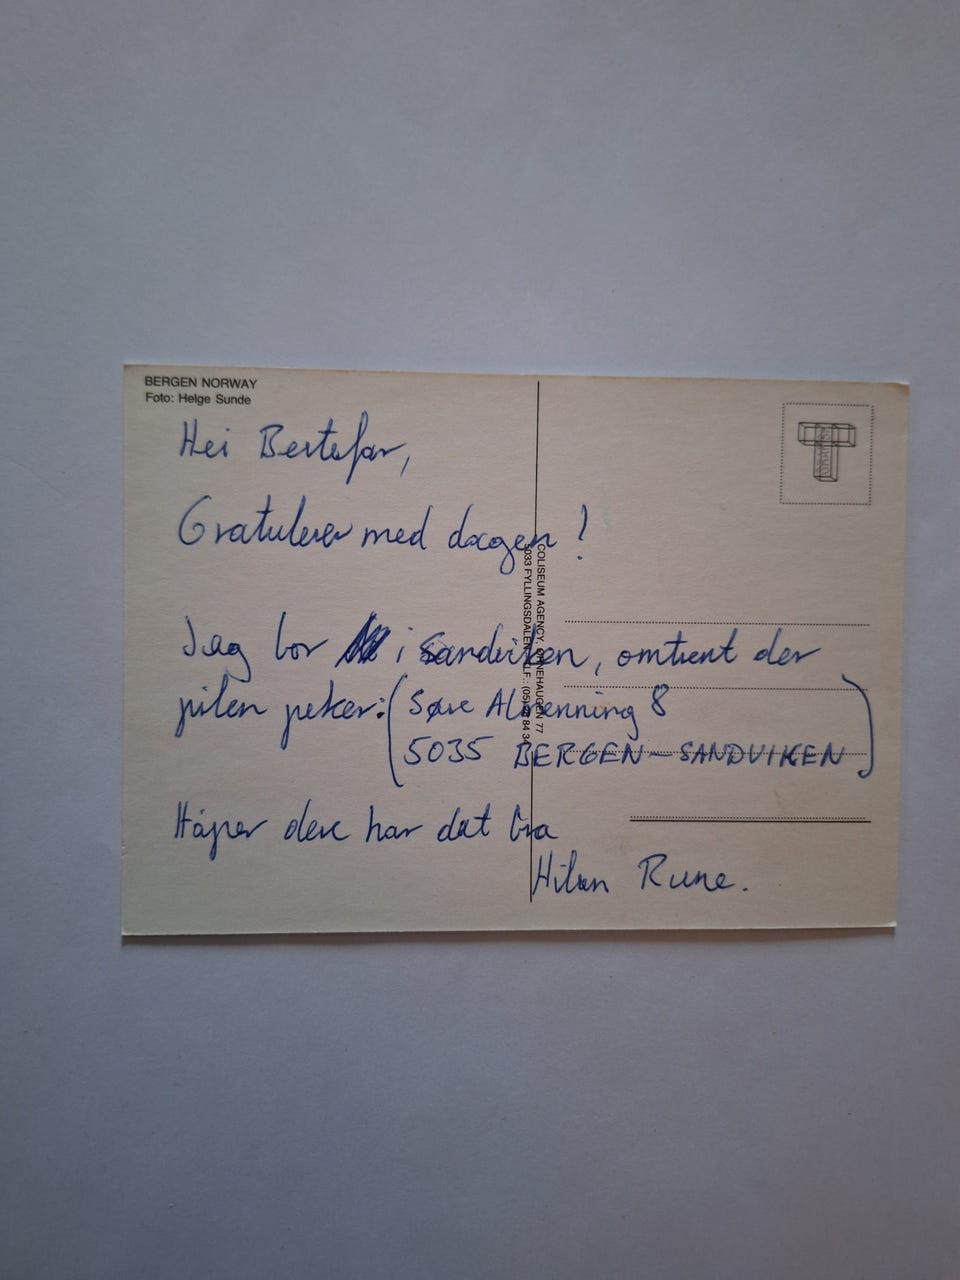 BERGEN NORWAY
Foto: Helge Sunde
Hei Bestefar,
Gratulerer med dagen!
Jag bor i Sandviken, omtrent der
pilen peker: (Søre Almenning 8
5035 BERGEN-SANDVIKEN)
Håper dere har det bra
Hilsen Rune.
COLISEUM AGENCY, ØRNEHAUGEN 77
5033 FYLLINGSDALEN. TLF.: (05) 84 34